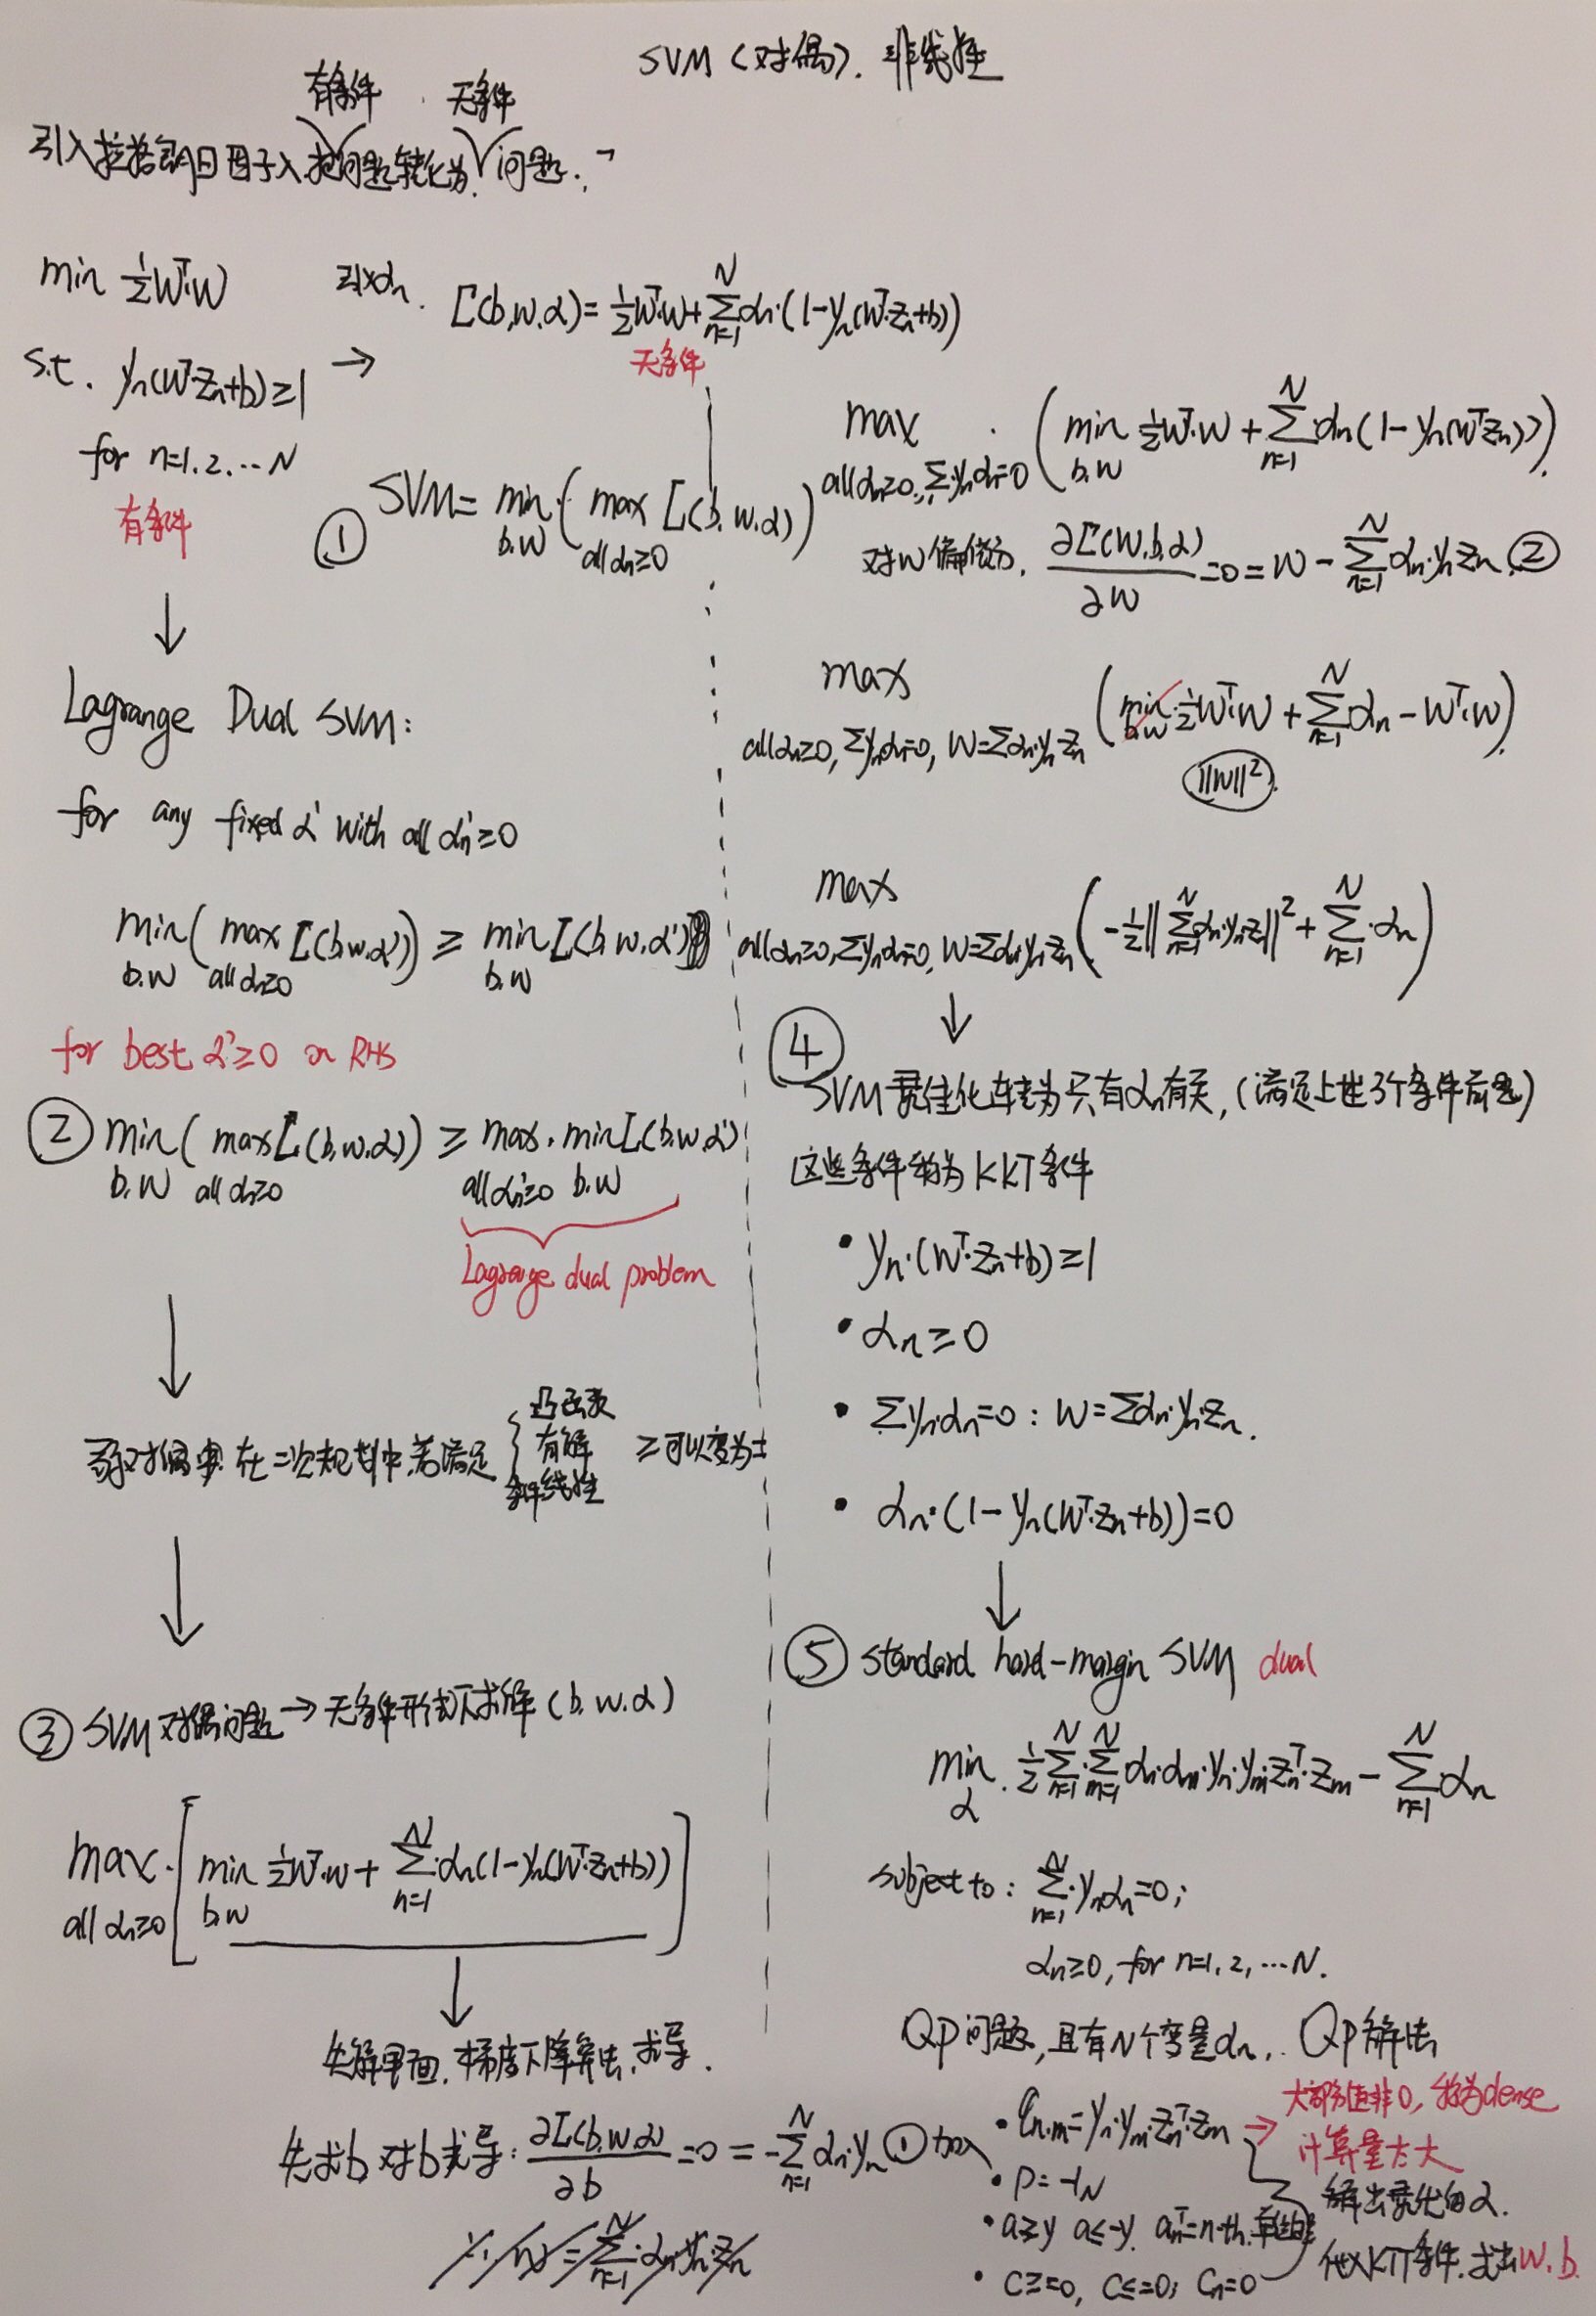 SVM (对偶). 非线性
有条件 无条件
引入拉格朗日因子λ把问题转化为 问题.
min ½WᵀW
引入αn.
L(b,w,α)=½WᵀW+∑_{n=1}^{N}αn·(1-yn(Wᵀzn+b))
无条件
s.t. yn(Wᵀzn+b)≥1 →
for n=1,2,…N
有条件
① SVM= min_{b,w}(max_{all αn≥0} L(b,w,α))
↓
Lagrange Dual SVM:
for any fixed α' with all αn'≥0
min_{b,w}(max_{all αn≥0} L(b,w,α)) ≥ min_{b,w} L(b,w,α')
for best α'≥0 on RHS
② min_{b,w}(max_{all αn≥0} L(b,w,α)) ≥ max_{all αn'≥0} min_{b,w} L(b,w,α')
Lagrange dual problem
↓
在二次规划中,若满足
凸函数
有解
条件线性
≥可以变为=
↓
③ SVM对偶问题→无条件形式下求解(b,w,α)
max_{all αn≥0} [min_{b,w} ½WᵀW+∑_{n=1}^{N}αn(1-yn(Wᵀzn+b))]
↓
先解里面,梯度下降算法,求导.
先求b,对b求导: ∂L(b,w,α)/∂b =0=-∑_{n=1}^{N}αn·yn ①
max_{all αn≥0,∑ynαn=0} (min_{b,w} ½WᵀW+∑_{n=1}^{N}αn(1-yn(Wᵀzn)))
对w偏微分. ∂L(W,b,α)/∂W =0=W-∑_{n=1}^{N}αn·yn zn ②
max_{all αn≥0,∑ynαn=0,W=∑αn·yn·zn} (min_{b,w} ½WᵀW+∑_{n=1}^{N}αn-WᵀW)
||W||²
max_{all αn≥0,∑ynαn=0,W=∑αn·yn·zn} (-½||∑_{n=1}^{N}αn·yn·zn||²+∑_{n=1}^{N}αn)
↓
④
SVM最佳化转为只有αn有关,(满足上述3个条件前提)
这些条件称为KKT条件
• yn·(Wᵀ·zn+b)≥1
• αn≥0
• ∑yn·αn=0: W=∑αn·yn·zn.
• αn·(1-yn(Wᵀ·zn+b))=0
↓
⑤ Standard hard-margin SVM dual
min_α ½∑_{n=1}^{N}∑_{m=1}^{N}αn·αm·yn·ym·znᵀ·zm-∑_{n=1}^{N}αn
subject to: ∑_{n=1}^{N}ynαn=0;
αn≥0, for n=1,2,…N.
QP问题,且有N个变量αn, QP解法
• qn,m=yn·ym·znᵀ·zm → 大部分值非0,称为dense
计算量太大
• p=-1N
• a≥=y a≤=-y anᵀ=n-th
• c≥=0, c≤=0; cn=0
解出最优的α.
代入KKT条件,求出W,b.